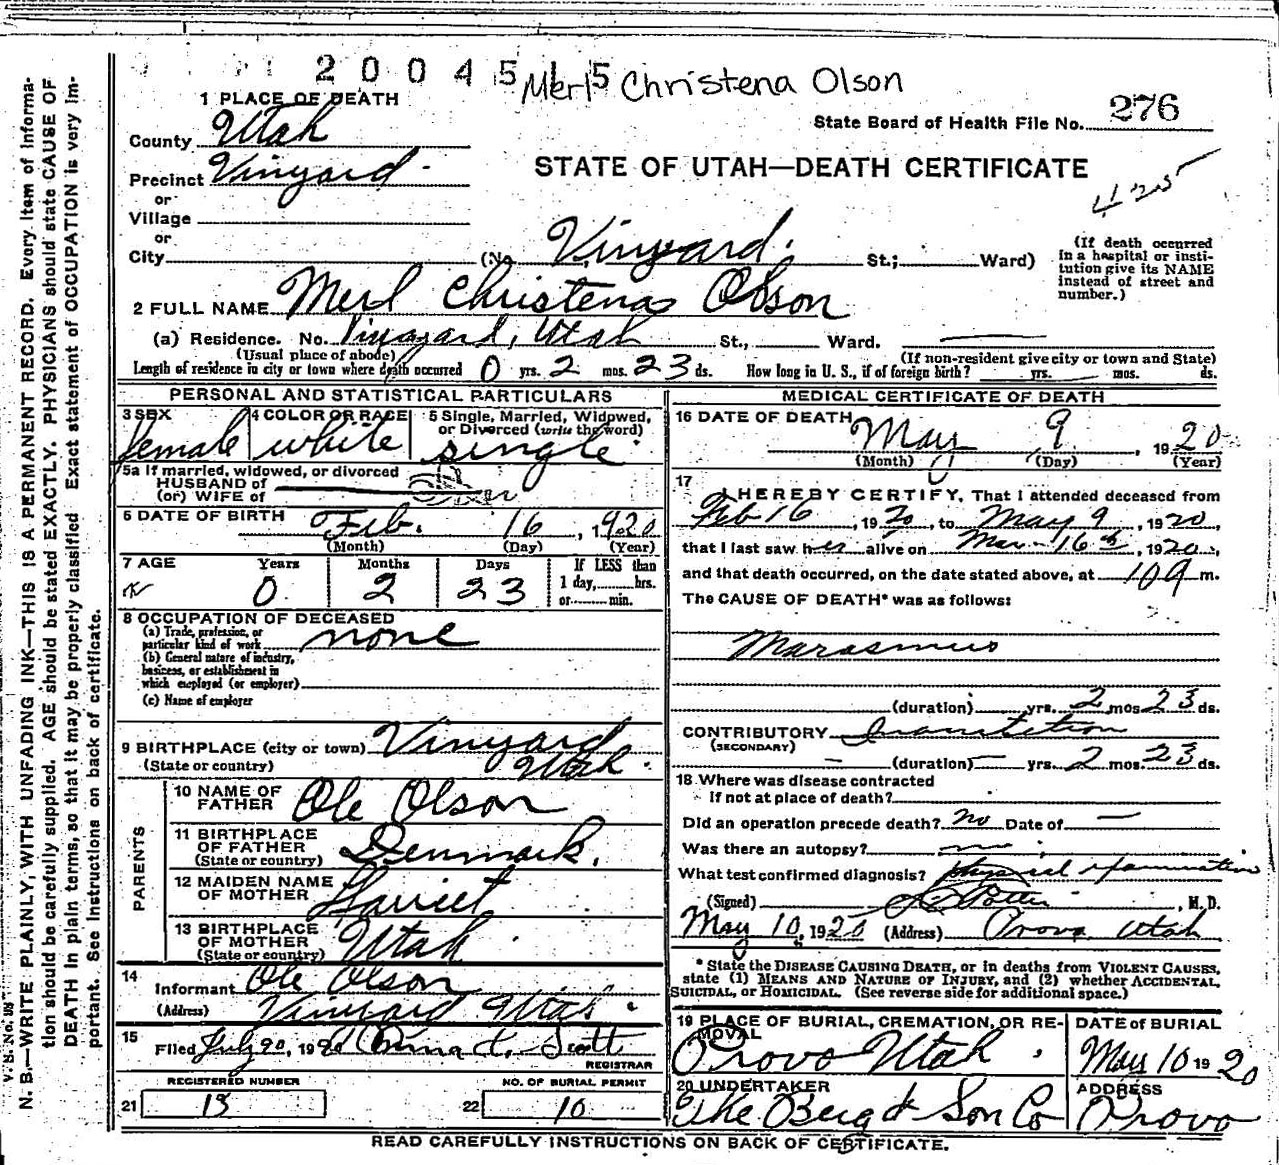 2 0 0 4 5 1 5
Merl Christena Olson
1 PLACE OF DEATH
County Utah
State Board of Health File No. 276
Precinct Vinyard
STATE OF UTAH—DEATH CERTIFICATE
425
or
Village
or
City (No. Vinyard. St.; Ward)
(If death occurred
in a hospital or insti-
tution give its NAME
instead of street and
number.)
2 FULL NAME Merl Christena Olson
(a) Residence. No. Vineyard, Utah St., Ward.
(Usual place of abode) (If non-resident give city or town and State)
Length of residence in city or town where death occurred 0 yrs. 2 mos. 23 ds. How long in U. S., if of foreign birth? yrs. mos. ds.
PERSONAL AND STATISTICAL PARTICULARS
3 SEX female
4 COLOR OR RACE white
5 Single, Married, Widowed,
or Divorced (write the word)
single
5a If married, widowed, or divorced
HUSBAND of
(or) WIFE of
6 DATE OF BIRTH Feb. 16, 1920
(Month) (Day) (Year)
7 AGE Years Months Days If LESS than
1 day, hrs.
or min.
0 2 23
8 OCCUPATION OF DECEASED
(a) Trade, profession, or
particular kind of work none
(b) General nature of industry,
business, or establishment in
which employed (or employer)
(c) Name of employer
9 BIRTHPLACE (city or town) Vinyard
(State or country) Utah.
PARENTS
10 NAME OF
FATHER Ole Olson
11 BIRTHPLACE
OF FATHER
(State or country) Denmark.
12 MAIDEN NAME
OF MOTHER Harriet
13 BIRTHPLACE
OF MOTHER
(State or country) Utah.
14
Informant Ole Olson
(Address) Vinyard Utah
15
Filed July 20, 1920 Scott
REGISTRAR
REGISTERED NUMBER
21 13
NO. OF BURIAL PERMIT
22 10
MEDICAL CERTIFICATE OF DEATH
16 DATE OF DEATH
May 9, 1920
(Month) (Day) (Year)
17
I HEREBY CERTIFY, That I attended deceased from
Feb 16, 1920, to May 9, 1920,
that I last saw her alive on Mar 16th, 1920,
and that death occurred, on the date stated above, at m.
The CAUSE OF DEATH* was as follows:
Marasmus
(duration) yrs. 2 mos 23 ds.
CONTRIBUTORY Inanition
(SECONDARY)
(duration) yrs. 2 mos 23 ds.
18 Where was disease contracted
if not at place of death?
Did an operation precede death? no Date of
Was there an autopsy? no
What test confirmed diagnosis? physical examination
(Signed) M.D.
May 10, 1920 (Address) Provo Utah
* State the DISEASE CAUSING DEATH, or in deaths from VIOLENT CAUSES,
state (1) MEANS AND NATURE OF INJURY, and (2) whether ACCIDENTAL,
SUICIDAL, or HOMICIDAL. (See reverse side for additional space.)
19 PLACE OF BURIAL, CREMATION, OR RE-
MOVAL
Provo Utah.
DATE of BURIAL
May 10 1920
20 UNDERTAKER
The Berg & Son Co
ADDRESS
Provo
READ CAREFULLY INSTRUCTIONS ON BACK OF CERTIFICATE.
N. B.—WRITE PLAINLY, WITH UNFADING INK—THIS IS A PERMANENT RECORD. Every item of informa-
tion should be carefully supplied. AGE should be stated EXACTLY. PHYSICIANS should state CAUSE OF
DEATH in plain terms, so that it may be properly classified. Exact statement of OCCUPATION is very im-
portant. See Instructions on back of certificate.